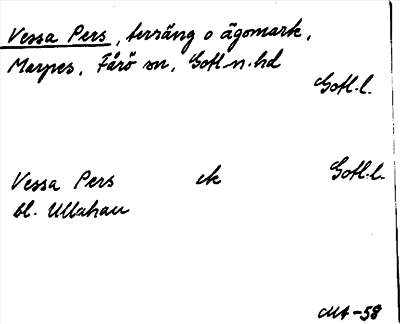 Vessa Pers, terräng o ägomark,
Marpes, Fårö sn, Gotl n. hd
Gotl. l.
Vessa Pers ek Gotl. l.
bl. Ullahau
MA-58